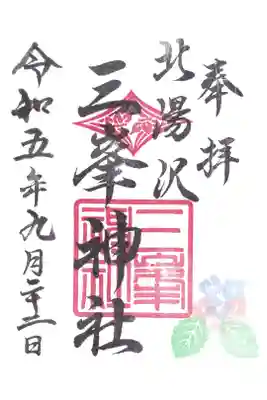 奉拝
北湯沢
三峯神社
令和五年九月二十二日
三峯神社